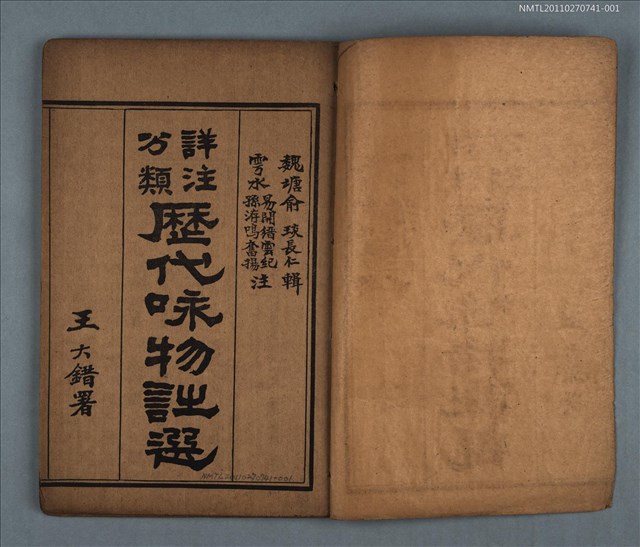 NMTL20110270741-001
魏塘俞琰長仁輯
雩水易開縉雲紀
孫洊鳴奮揚注
詳注
分類
歷代咏物詩選
王大錯署
NMTL20110270741-001